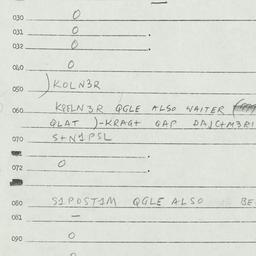 030 0
031 0 .
032 0 .
040 0
) KOLN3R
050
060 KOELN3R QGLE ALSO WAITER (
QLAT )-KRAG+ QAP DAJC+M3RI
070 S+N1PSL
.
072 0 .
080 S1POST1M QGLE ALSO BE
081 –
090 0